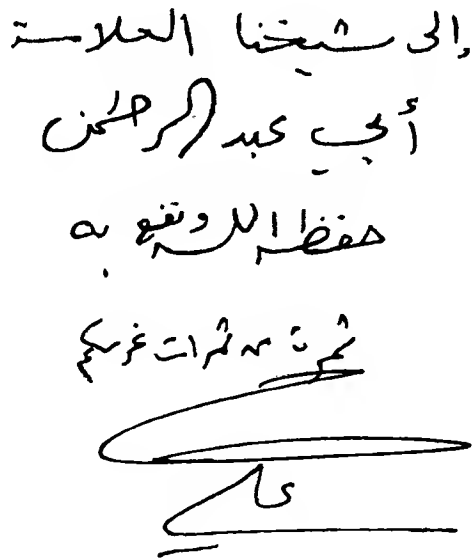 إلى شيخنا العلامة
أبي عبد الرحمن
حفظه الله ونفع به
ثمرة من ثمرات غرسكم
علي